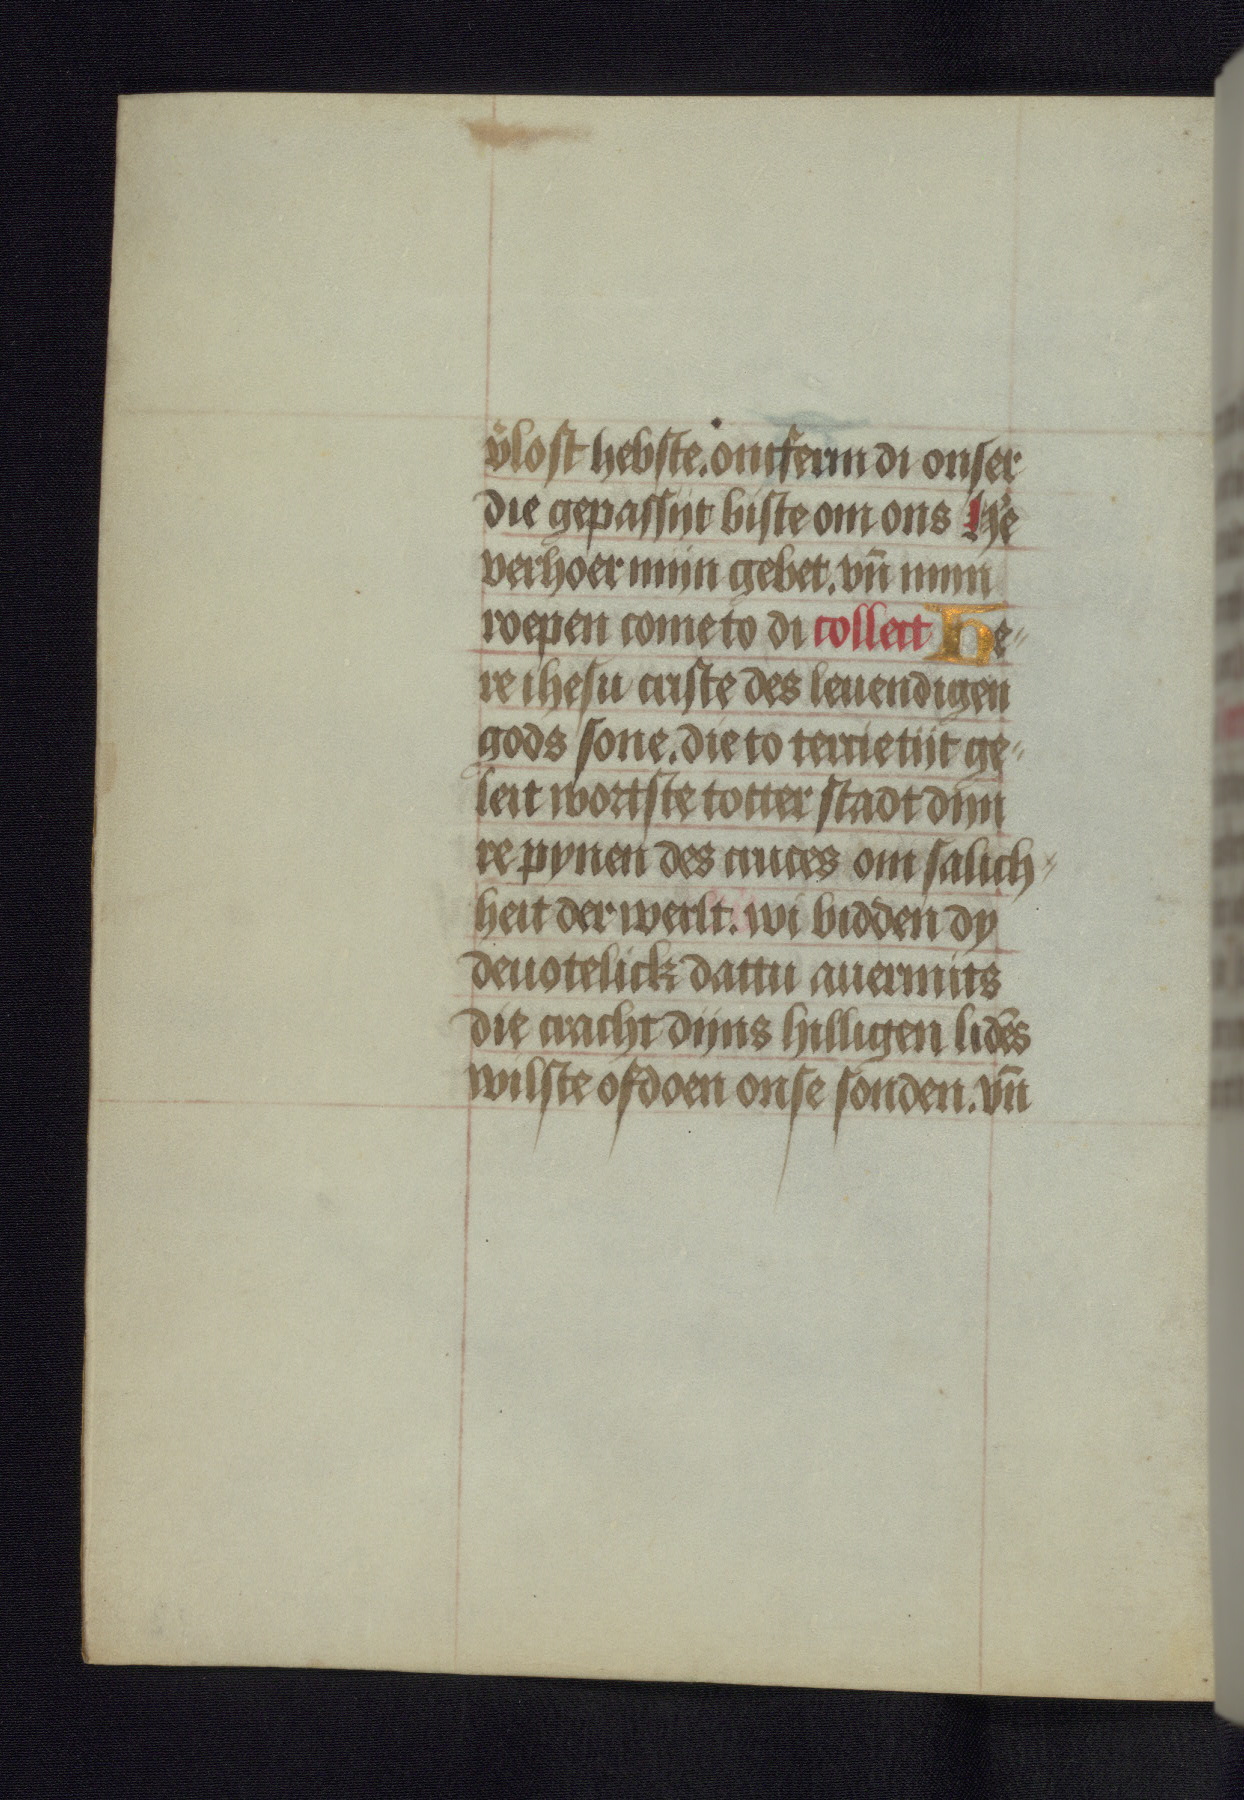 v̾lost hebste. ontferm di onser
die gepassijt biste om ons He͛
verhoer mijn gebet. vn̄ mijn
roepen come to di collect He-
re ihesu criste des leuendigen
gods sone. die to tercietijt ge-
leit wortste totter stadt dijn
re pynen des cruces om salich-
heit der werlt. wi bidden dy
deuotelick dattu auermits
die cracht dijns hilligen lidēs
wilste ofdoen onse sonden. vn̄